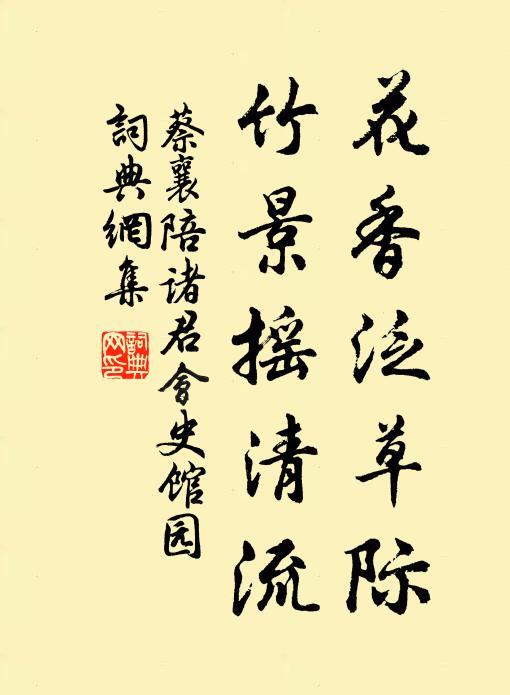 花香泛草际
竹景摇清流
蔡襄陪诸君會史馆园
詞典網集
詞典
网印